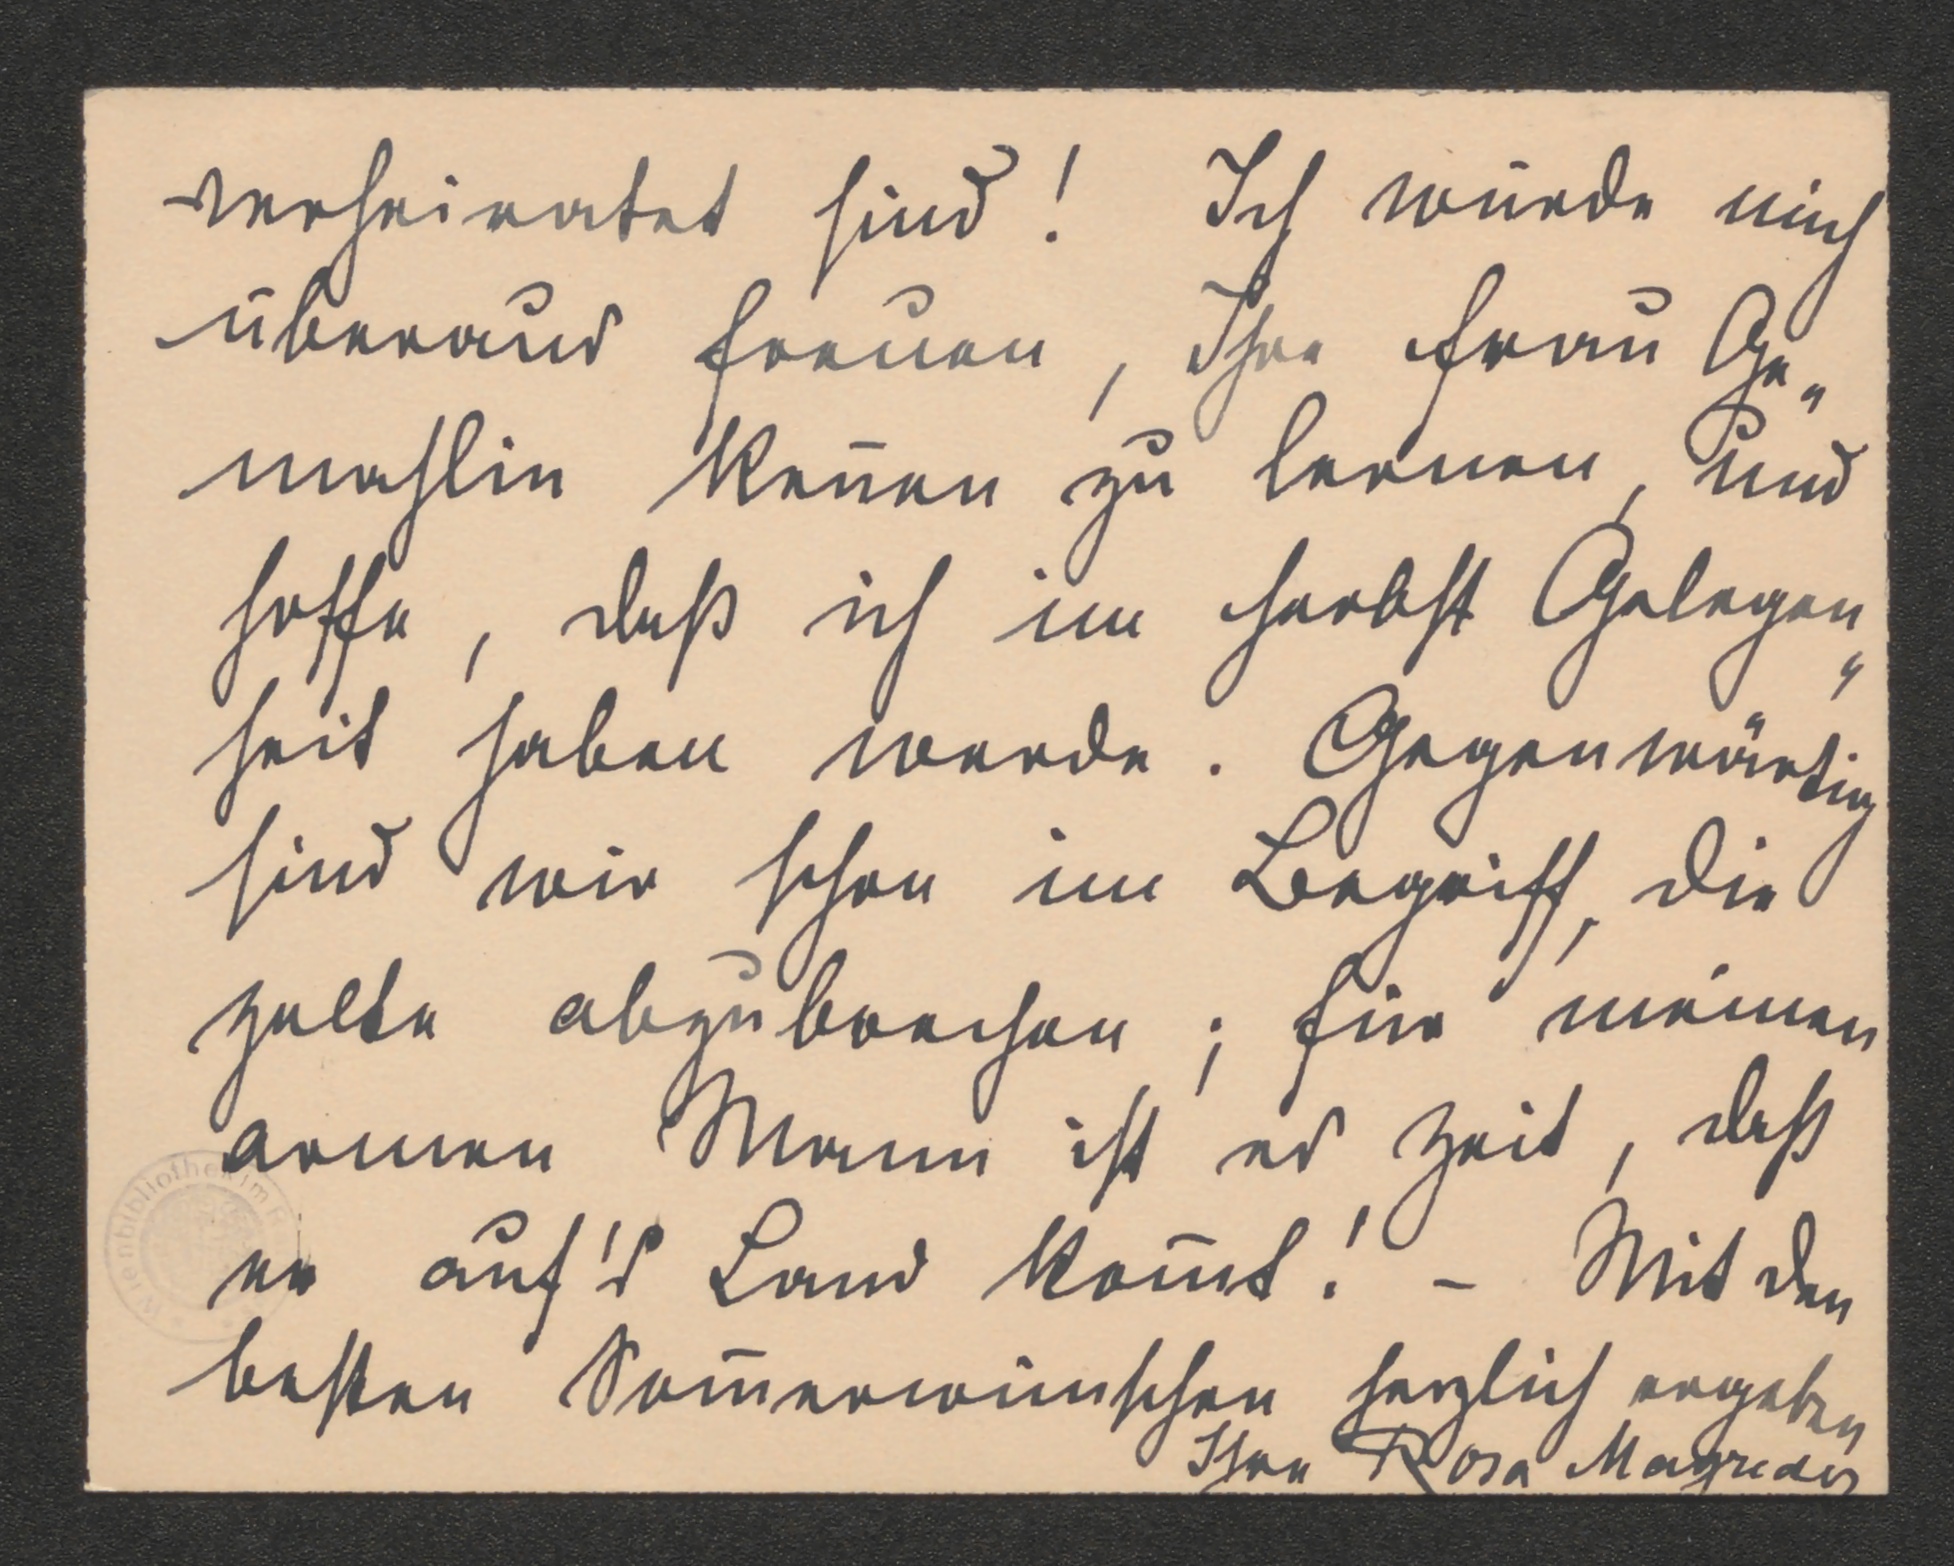 verheiratet sind! Ich würde mich
überaus freuen, Ihre Frau Ge„
mahlin ken̄en zu lernen, und
hoffe, daß ich im Herbst Gelegen„
heit haben werde. Gegenwärtig
sind wir schon im Begriff, die
Zelte abzubrechen; für meinen
armen Mann ist es Zeit, daß
er auf's Land kom̄t! – Mit den
besten Som̄erwünschen herzlich ergeben
Ihre Rosa Mayreder
Wienbibliothek im R